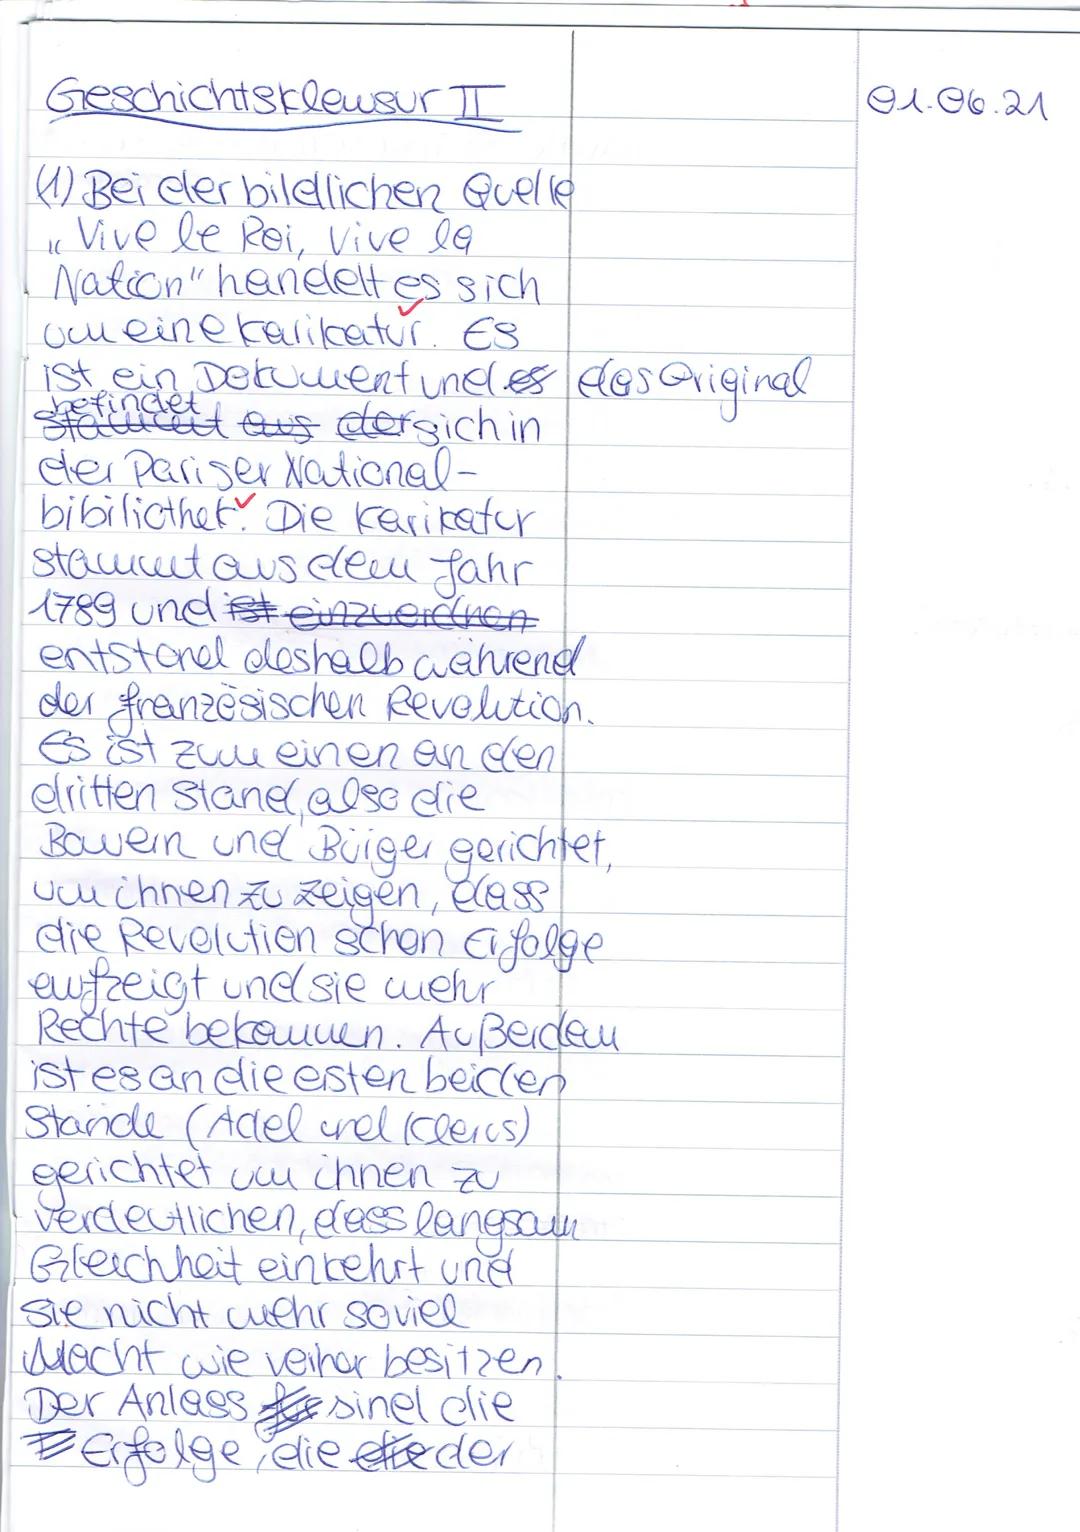 Geschichtsklausur II 01.06.21
(1) Bei der bildlichen Quelle
„Vive le Roi, vive la
Nation" handelt es sich
um eine Karikatur. Es
ist ein Dokument und es das Original
befindet
stammt aus der sich in
der Pariser National-
bibiliothek. Die Karikatur
stammt aus dem Jahr
1789 und ist einzuordnen
entstand deshalb während
der französischen Revolution.
Es ist zum einen an den
dritten Stand, also die
Bauern und Bürger gerichtet,
um ihnen zu zeigen, dass
die Revolution schon Erfolge
aufzeigt und sie mehr
Rechte bekommen. Außerdem
ist es an die ersten beiden
Stände (Adel und Klerus)
gerichtet um ihnen zu
verdeutlichen, dass langsam
Gleichheit einkehrt und
sie nicht mehr soviel
Macht wie vorher besitzen.
Der Anlass für sind die
Erfolge, die die der